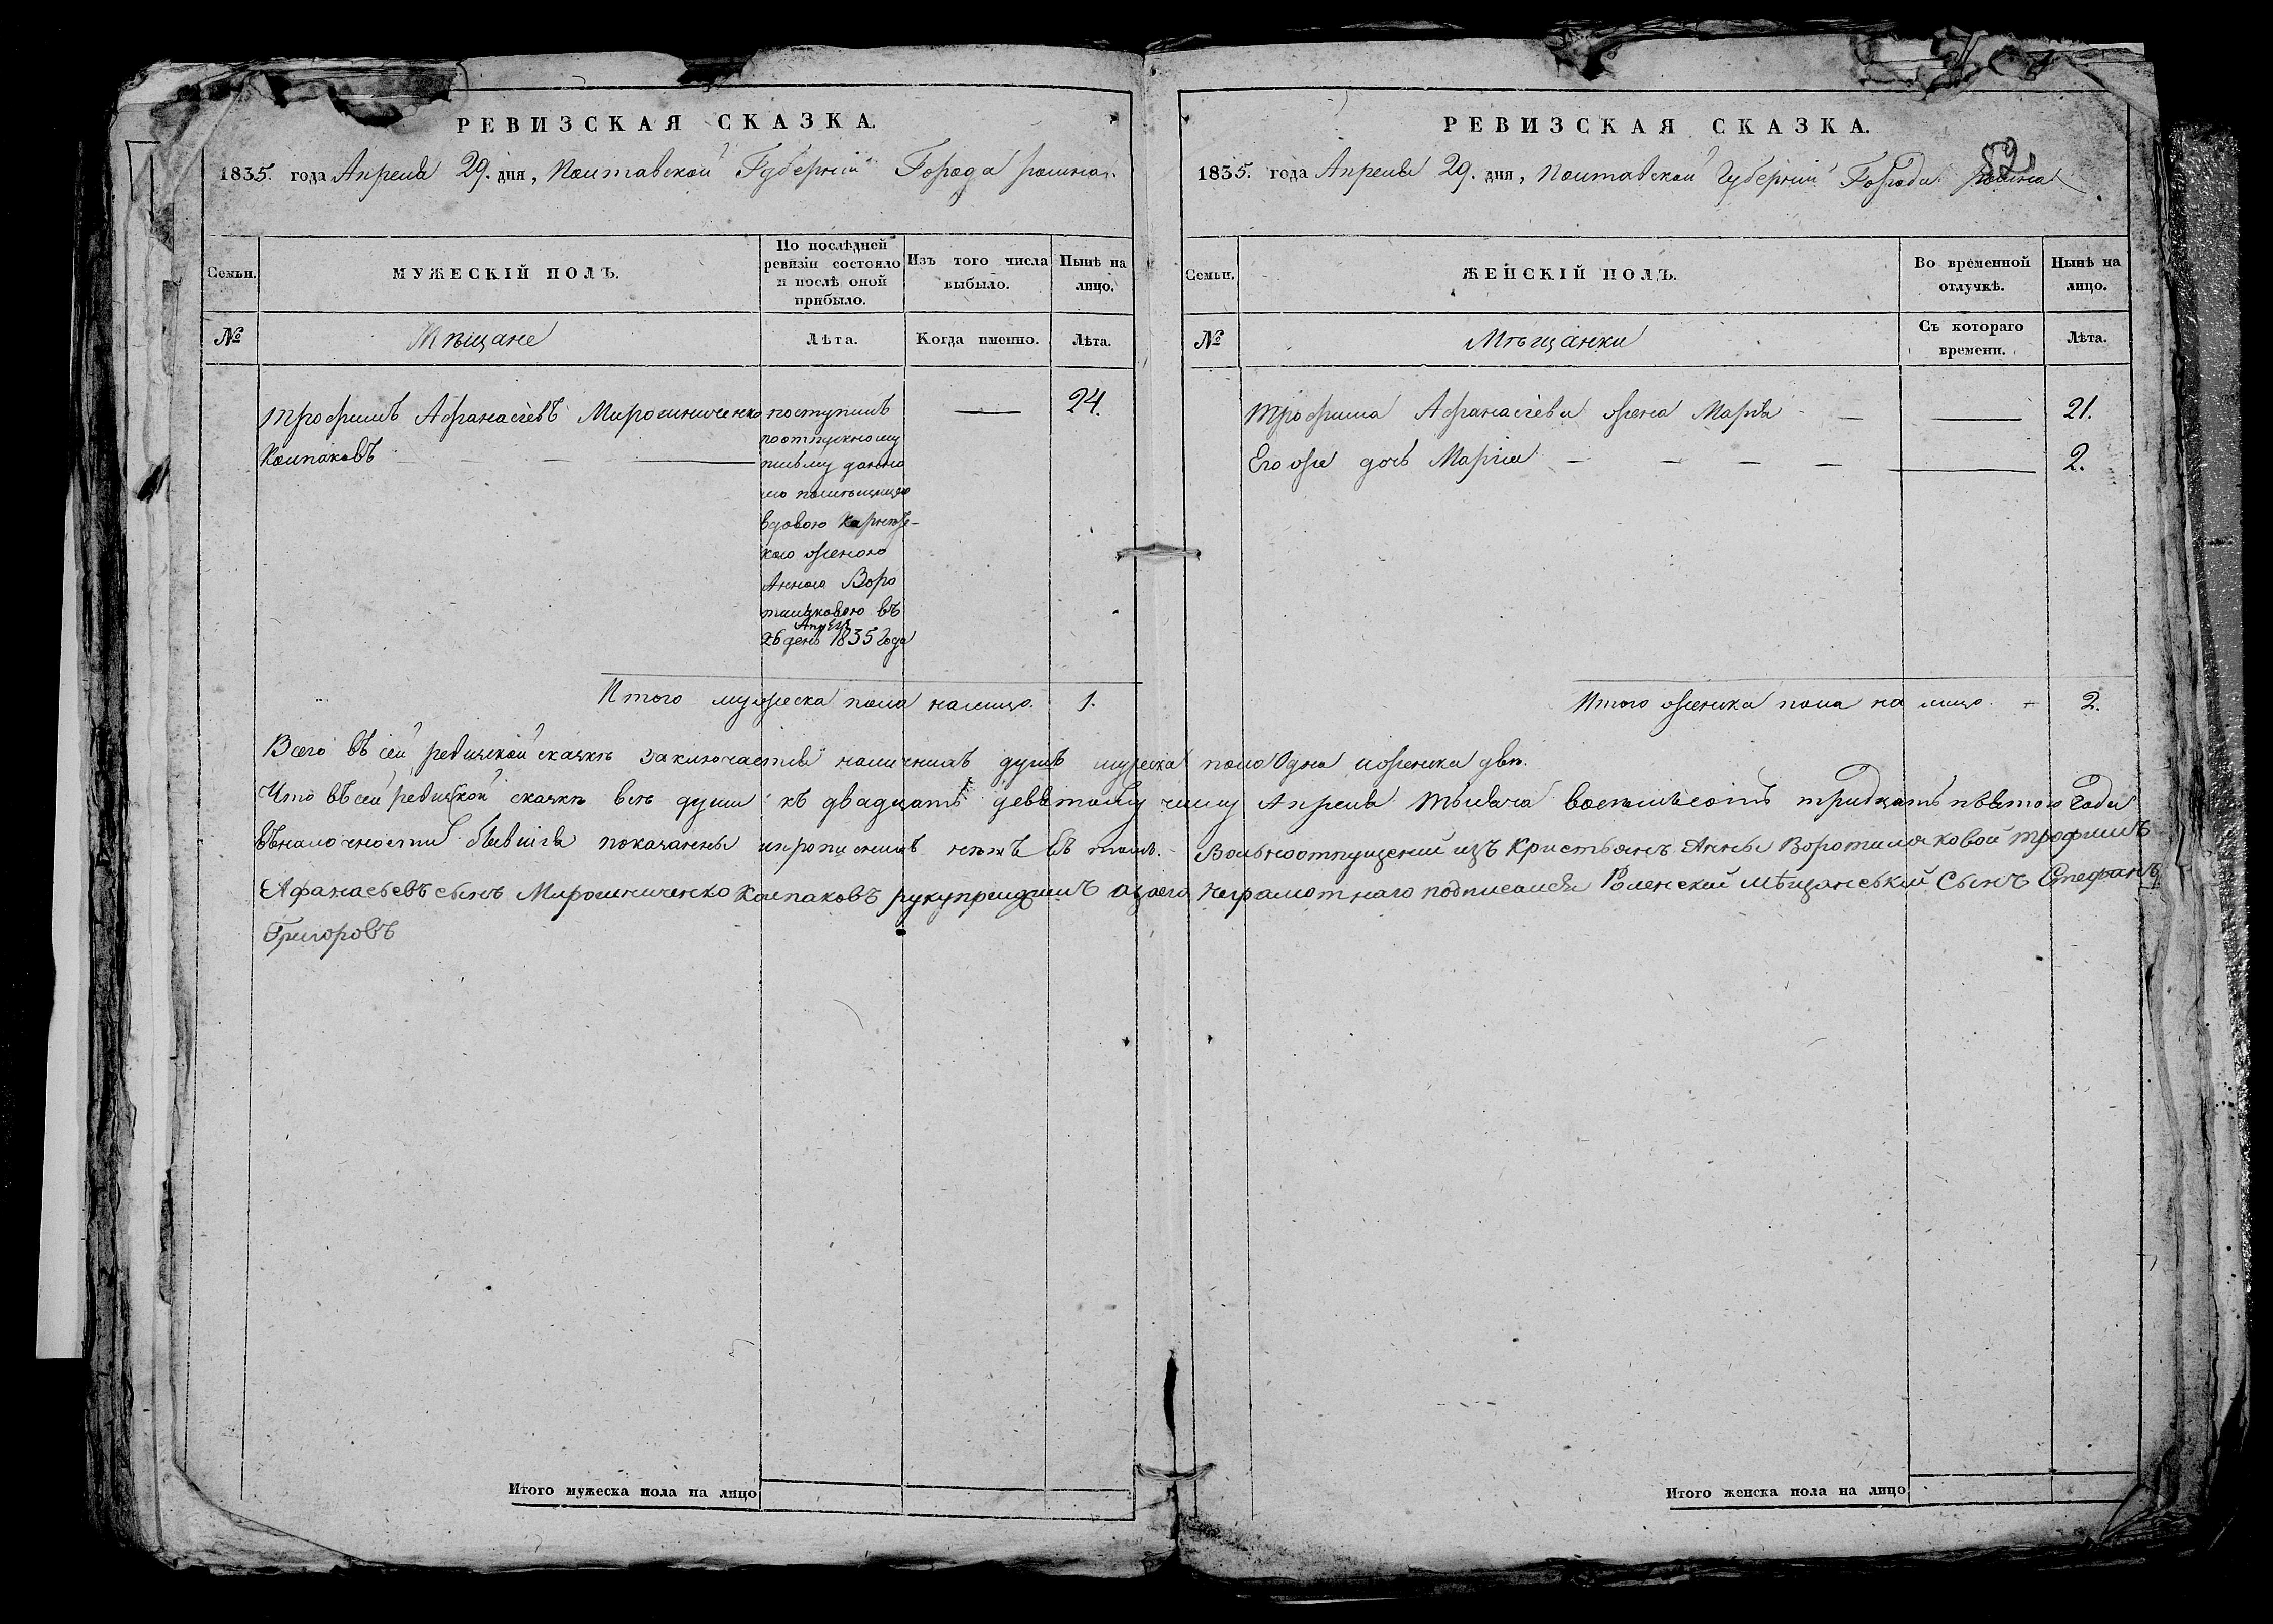 РЕВИЗСКАЯ СКАЗКА.
1835. года Апреля 29. дня, Полтавской Губерніи Города ромна.
Семьи.
МУЖЕСКІЙ ПОЛЪ.
По послѣдней
ревизіи состояло
и послѣ оной
прибыло.
Изъ того числа
выбыло.
Нынѣ на
лицо.
№
Мѣщане
Лѣта.
Когда именно.
Лѣта.
Трофимъ Афанасіевъ Мирошниченко
Колпаковъ
поступилъ
поотпускному
письму данно
му помѣщицею
вдовою
кого женою
Анною Воро
тиляковою въ
Апреля
26 день 1835 Года
24.
Итого мужеска пола налицо. 1.
РЕВИЗСКАЯ СКАЗКА.
82
1835. года Апреля 29. дня, Полтавской Губерніи Города ромна
Семьи.
ЖЕНСКІЙ ПОЛЪ.
Во временной
отлучкѣ.
Нынѣ на
лицо.
№
Мѣщанки
Съ котораго
времени.
Лѣта.
Трофима Афанасіева жена Марѳа 21.
Его же дочь Марія 2.
Итого женска пола на лицо. 2.
Всего въ сей ревизской сказкѣ заключается наличныхъ душъ мужеска пола Одна иженска двѣ.
Что въсей ревизской сказкѣ всѣ души къ двадцать девятому числу Апреля тысяча восемьсотъ тридцать пятого Года
въналочности бывшія показанны ипрописныхъ нѣтъ Въ томъ. Вольноотпущений изъ Кристьянъ Анны Воротиляковой трофимъ
Афанасьевъ сынъ Мирошниченко Колпаковъ рукуприложилъ азаего неграмотнаго подписался Роменский мѣщанський Сынъ Стефанъ
Григоровъ
Итого мужеска пола на лицо
Итого женска пола на лицо